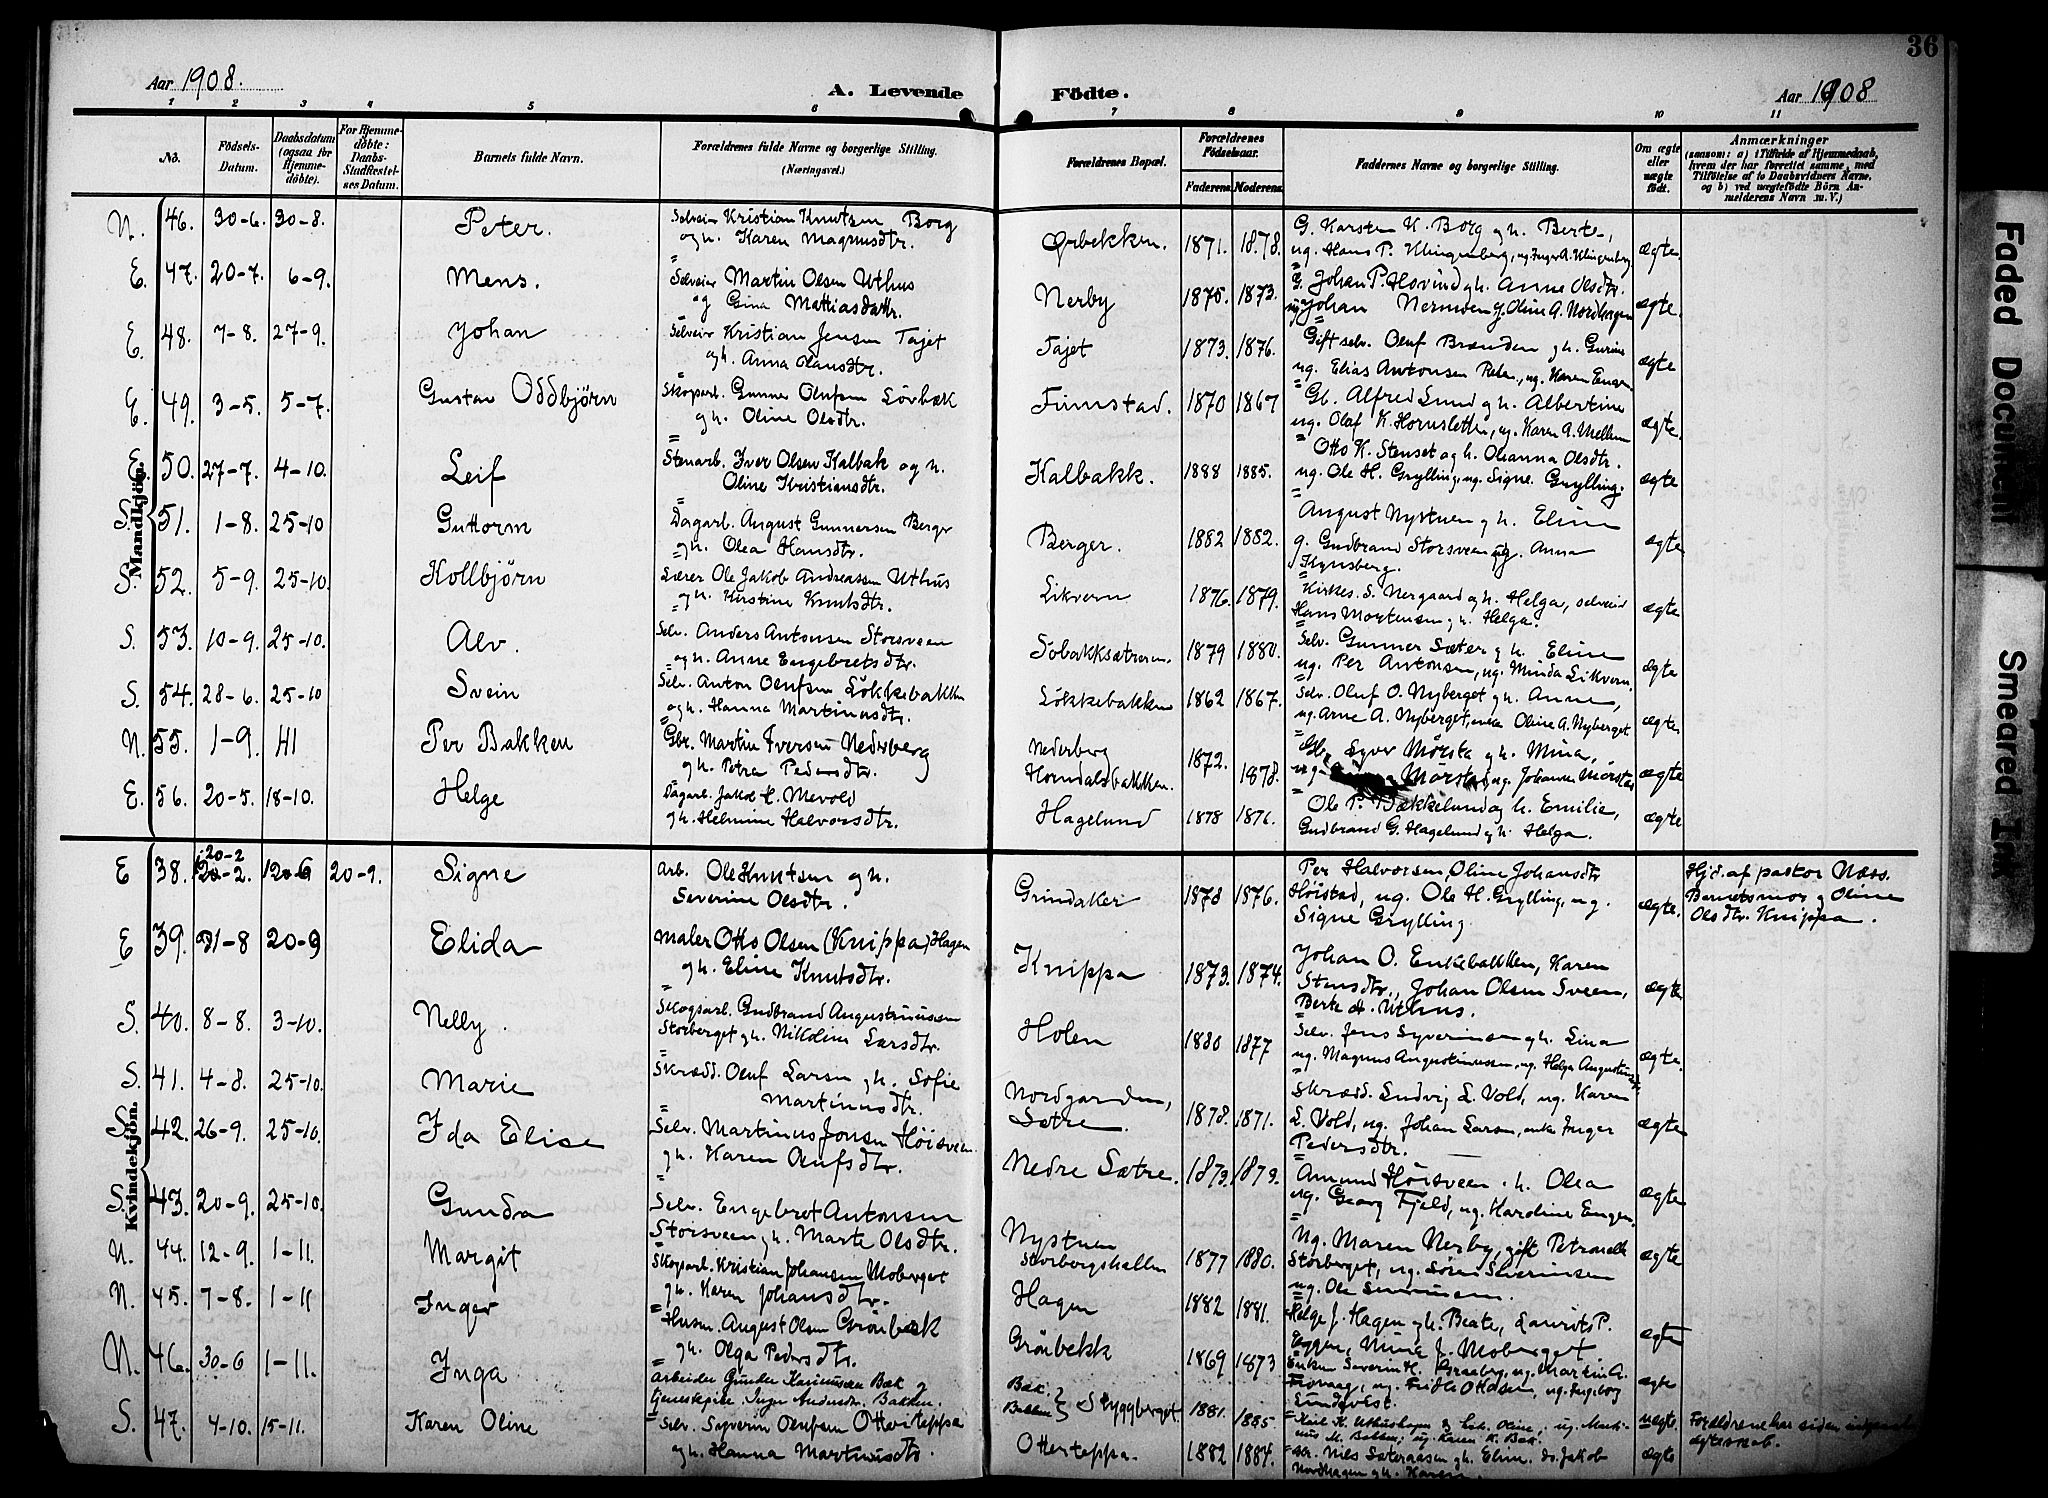 36
Aar 1908.
A. Levende
Födte.
Aar 1908
1 2 3 4 5 6 7 8 9 10 11
No.
Födsels-Datum.
Daabsdatum (ogsaa for Hjemmedöbte).
For Hjemmedöbte: Daabs-Stadfæstelses Datum.
Barnets fulde Navn.
Forældrenes fulde Navne og borgerlige Stilling. (Næringsvei.)
Forældrenes Bopæl.
Forældrenes Födselsaar.
Faderens.
Moderens.
Faddernes Navne og borgerlige Stilling.
Om ægte eller uægte födt.
Anmærkninger
(saasom: a) i Tilfælde af Hjemmedaab, hvem der har forrettet samme, med Tilföielse af to Daabsvidners Navne, og b) ved uægtefödte Börn Anmelderens Navn m. V.)
Mandkjön.
N. 46. 30-6. 30-8. Peter. Selveier Kristian Knutsen Borg
og h. Karen Magnusdtr. Ørbekken. 1871. 1878. G. Karsten K. Borg og h. Berte,
ug. Hans P. Klingenberg, ug. Inger A. Klingenberg ægte
E. 47. 20-7. 6-9. Mens. Selveier Martin Olsen Uthus
og Gina Mattiasdatter. Nerby 1875. 1873. G. Johan P. Hovind og h. Anne Olsdtr.
Johan Nermoen Oline A. Nordhagen ægte.
E. 48. 7-8. 27-9. Johan Selveier Kristian Jensen Tajet
og h. Anna Olausdtr. Tajet 1873. 1876. Gift selv. Oluf Brænden og h. Gurine
ug. Elias Antonsen ug. Karen Engen ægte
E. 49. 3-5. 5-7. Gustav Oddbjörn Skogsarb. Gunner Olufsen Lövbæk
og h. Oline Olsdtr. Finnstad. 1870 1867 Gb. Alfred Lund og h. Albertine
ug. Olaf K. Hornsletten, ug. Karen A. Mellem ægte.
E. 50. 27-7. 4-10. Leif Stenarb. Iver Olsen Kalbak og h.
Oline Kristiansdtr. Kalbakk. 1888 1885. Otto K. Stenset og h. Ohanna Olsdtr.
ug. Ole H. Grylling, ug. Signe Grylling. ægte
S. 51. 1-8. 25-10 Guttorm Dagarb. August Gunnersen Berger
og h. Olea Hansdtr. Berger. 1882 1882. August Nystuen og h. Eline
g. Gudbrand Storsveen og Anna
Kynsberg. ægte
S. 52. 5-9. 25-10. Kollbjörn Lærer Ole Jakob Andreassen Uthus
og h. Kirstine Knutsdtr. Likvern 1876. 1879. Kirkes. S. Nergaard og h. Helga, selveier
Hans Mortensen og h. Helga. ægte
S. 53. 10-9. 25-10. Alv. Selv. Anders Antonsen Storsveen
og h. Anne Engebretsdtr. Sobakksætreren. 1879 1880. Selv. Gunner Sæter og h. Eline
ug. Per Antonsen, ug. Minda Likvern. ægte
S. 54. 28-6. 25-10 Svein Selv. Anton Olufsen Lökkebakken
og h. Hanna Martinusdtr. Lökkebakken 1862 1867. Selv. Oluf O. Nyberget og h. Anne,
ug. Arne A. Nyberget, enke Oline A. Nyberget ægte
N. 55. 1-9. Per Bakken Gbr. Martin Iversen Nederberg
og h. Petra Pedersdtr. Nederberg
Horndalsbakken. 1872. 1878. Gb. Syver Mörsta og h. Mina,
ug. Mörstad, ug. Johanne Mörstad ægte
E. 56. 20-5. 18-10. Helge Dagarb. Jakob H. Mevold
og h. Helmine Halvorsdtr. Hagelund 1878 1876. Ole P. Bækkelund og h. Emilie,
Gudbrand G. Hagelund og h. Helga. ægte
Kvindekjön.
E 38. 20-2 20-2. 20-6 20-9. Signe Arb. Ole Knutsen og h.
Severine Olsdtr. Grindaker 1878 1876. Per Halvorsen, Oline Johansdtr
Höistad, ug. Ole H. Grylling, ug.
Signe Grylling ægte. Hjd. af pastor Næss.
Barnets mor og Oline
Olsdtr. Knippa.
E 39. 31-8 20-9 Elida Maler Otto Olsen (Knippa) Hagen
og h. Eline Knutsdtr. Knippa 1873. 1874. Johan O. Enkebakken, Karen
Stensdtr., Johan Olsen Sveen,
Berte A. Uthus. ægte
S. 40. 8-8. 3-10. Nelly. Skogsarb. Gudbrand Augustinussen
Storberget og h. Nikoline Larsdtr. Holen 1880 1877 Selv. Jens Syverinsen og h. Lina
ug. Magnus Augustinussen, ug. Helga Augustinusd. ægte.
S. 41. 4-8. 25-10. Marie Skrædd. Oluf Larsen og h. Sofie
Martinusdtr. Nordgarden,
Sætre. 1878. 1871. Skrædd. Ludvig L. Vold, ug. Karen
L. Vold, ug. Johan Larsen, enke Inger
Pedersdtr. ægte
S. 42. 26-9. 25-10. Ida Elise Selv. Martinus Jonsen Höisveen
og h. Karen Olufsdtr. Nedre Sætre. 1873. 1873. Amund Höisveen . h. Olea
ug. Georg Fjeld, ug. Karoline Engen. ægte
S. 43. 20-9. 25-10. Gunda Selv. Engebret Antonsen
Storsveen og h. Marte Olsdtr. Nystuen
Storbergshallen 1877 1880. Ug. Maren Nerby, gift Petronelle
Storberget, ug. Sören Severinsen
ug. Ole Severinsen. ægte
N. 44. 12-9. 1-11. Margit Skogsarb. Kristian Johansen Moberget
og h. Karen Johansdtr. Hagen 1882 1881. Helge J. Hagen og h. Beate, Laurits P.
Eggen, Mina J. Moberget ægte
N. 45. 7-8. 1-11 Inger Husm. August Olsen Grönbæk
og h. Olga Pedersdtr. Grönbekk 1869 1873 Enken Severin H. Graaberg, ug. Martin A.
Frovaag, ug. Fridle Ottosen, ug. Ingeborg
Lundqvist. ægte
N. 46. 30-6 1-11. Inga Arbeider Gunder Karinusen Bæk og
tjenestepike Inger Andersdtr. Bakken. Bæk }
Bakken } Styggberget. 1881. 1885 Karl K. Uthushagen og h. Oline, ug. Martinus M. Bakken, ug. Karen K. Bæk. uægte Forældrene har siden indgaaet
ægteskab.
S. 47. 4-10. 15-11. Karen Oline Selv. Syverin Olufsen Otterteppa
og h. Hanna Martinusdtr. Otterteppa. 1882 1884. Nils Sæteraasen og h. Eline, do. Jakob
Nordhagen og h. Karen. ægte
Faded Document
Smeared Ink